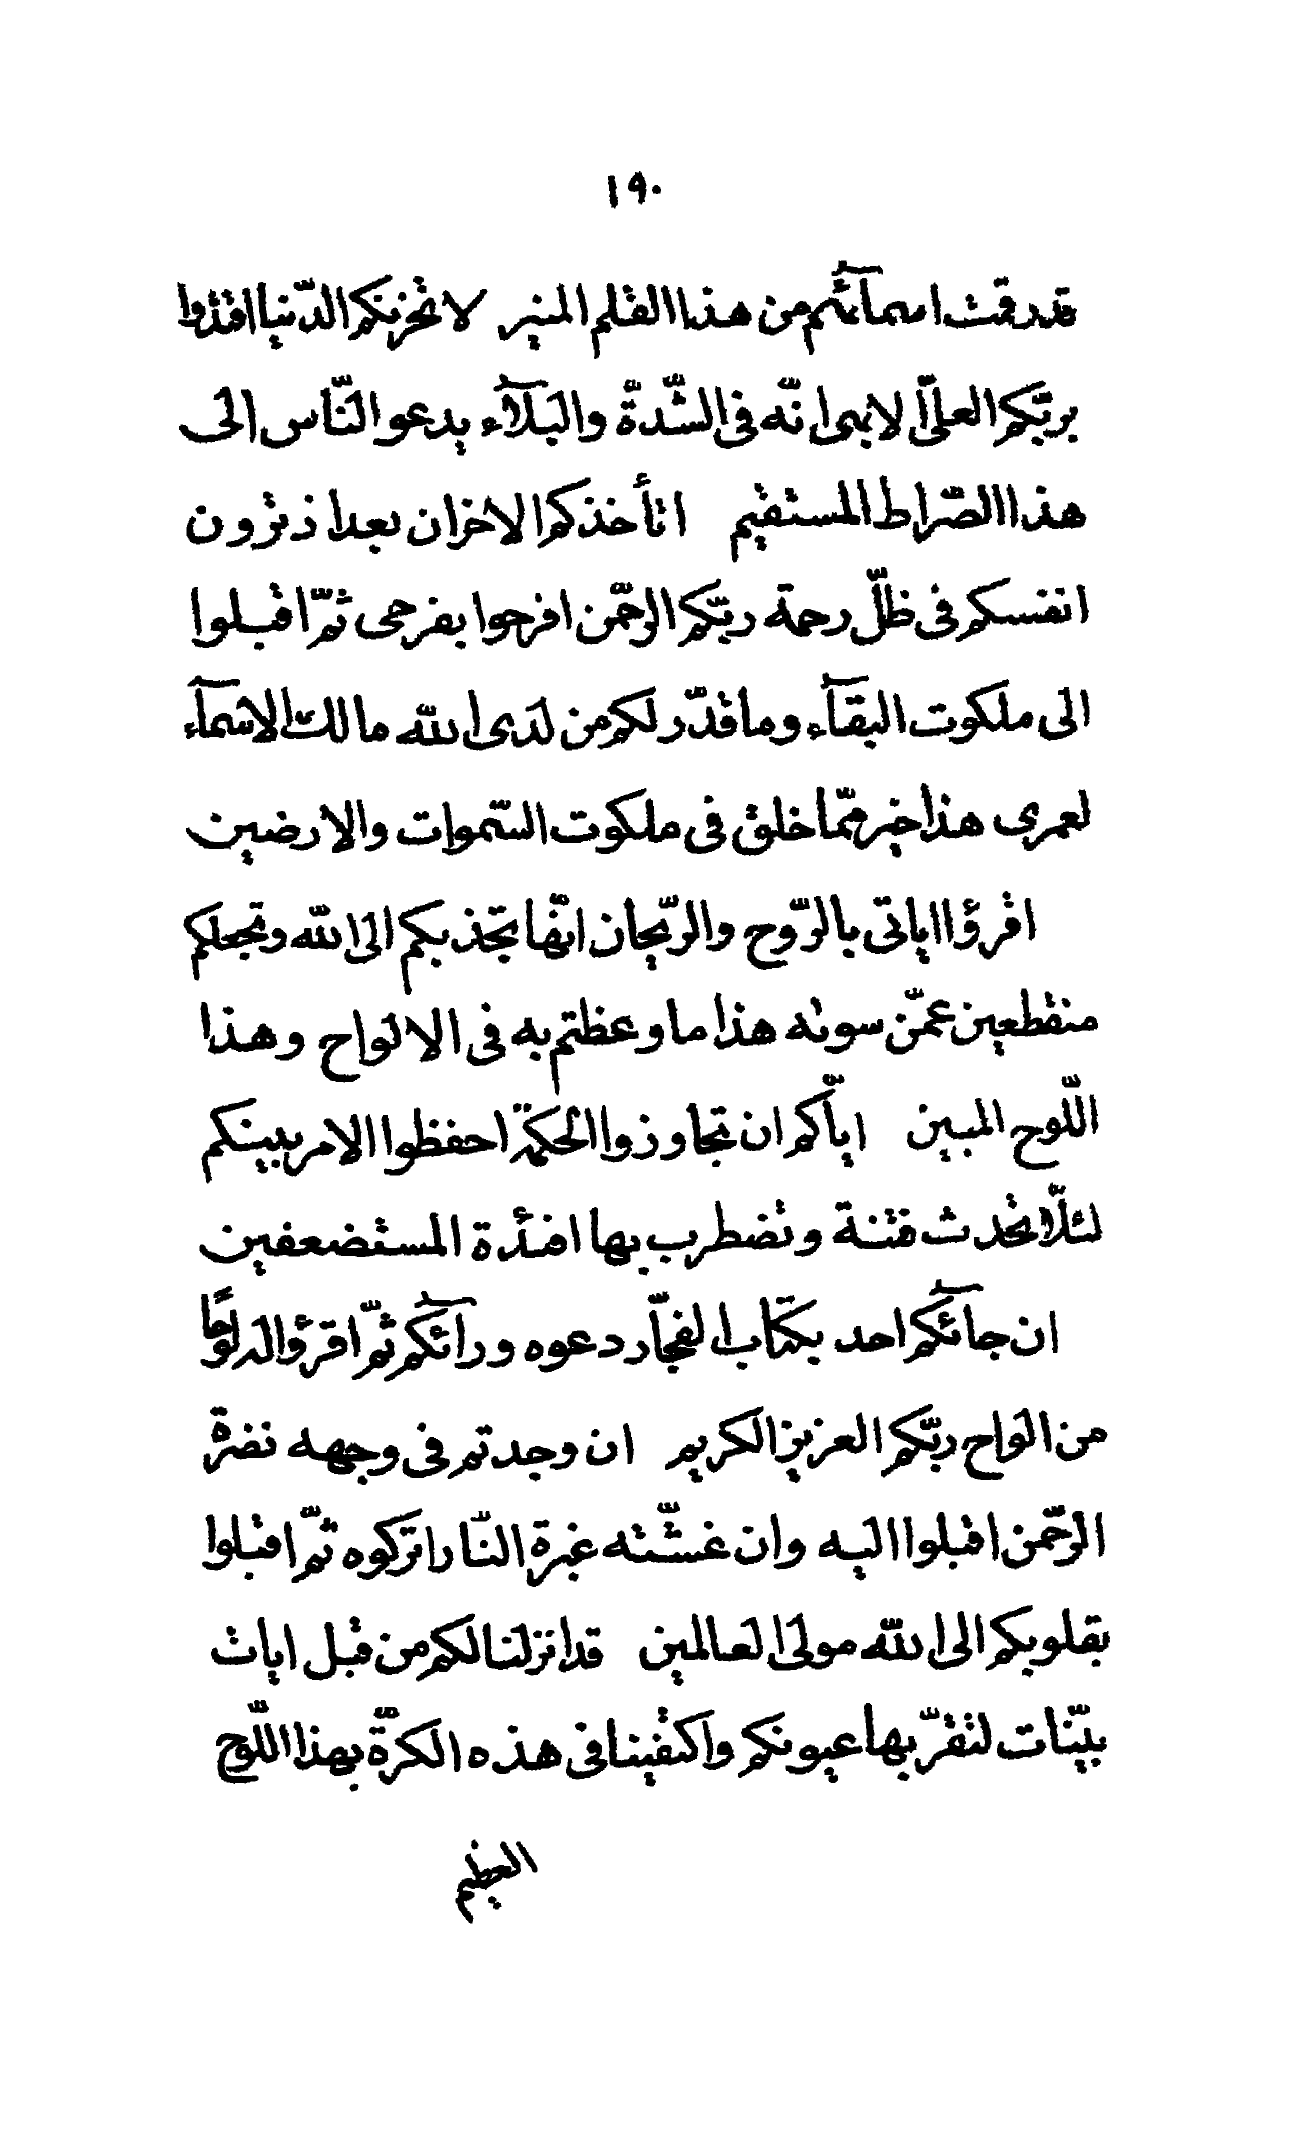 ١٩٠
قد رقت اسمآئكم من هذا القلم المنير لا تحزنكم الدّنيا اقتدوا
بربّكم العلىّ الابهى انّه فى الشّدّة والبلآء يدعو النّاس الى
هذا الصّراط المستقيم اتأخذكم الاحزان بعد اذ ترون
انفسكم فى ظلّ رحمة ربّكم الرّحمن افرحوا بفرحى ثمّ اقبلوا
الى ملكوت البقآء وما قدّر لكم من لدى الله مالك الاسمآء
لعمرى هذا خير ممّا خلق فى ملكوت السّموات والارضين
اقرؤا اياتى بالرّوح والرّيحان انّها تجذبكم الى الله وتجعلكم
منقطعين عمّن سوئه هذا ما وعظتم به فى الالواح وهذا
اللّوح المبين ايّاكم ان تجاوزوا الحكمة احفظوا الامر بينكم
لئلّا تحدث فتنة وتضطرب بها افئدة المستضعفين
ان جآئكم احد بكتاب الفجّار دعوه ورآئكم ثمّ اقرؤا له لوحًا
من الواح ربّكم العزيز الكريم ان وجدتم فى وجهه نضرة
الرّحمن اقبلوا اليه وان غشّته غبرة النّار اتركوه ثمّ اقبلوا
بقلوبكم الى الله مولى العالمين قد انزلنا لكم من قبل ايات
بيّنات لتقرّ بها عيونكم واكتفينا فى هذه الكرّة بهذا اللّوح
العظيم